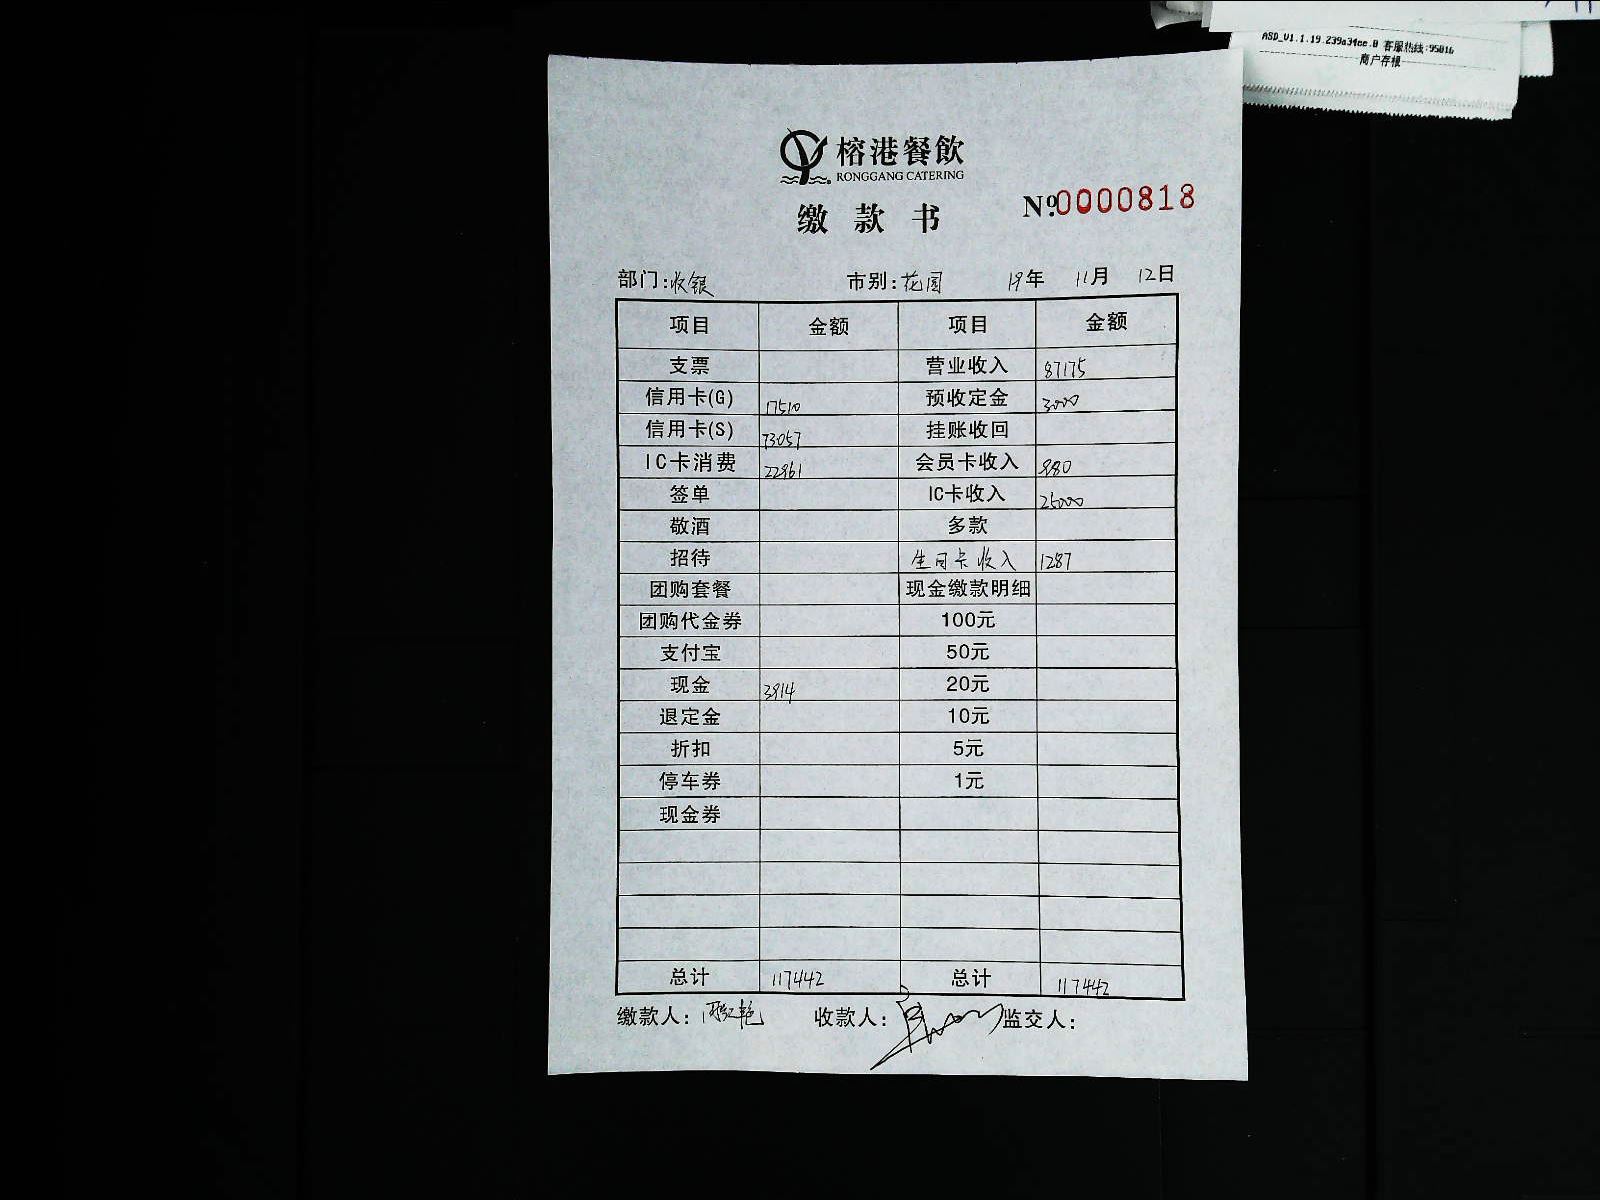 ASD_V1.1.19.239a34ee.0 客服热线:95016
商户存根
榕港餐飲
RONGGANG CATERING
缴款书 Nº.0000818
部门:收银 市别:花园 19年 11月 12日
项目 金额 项目 金额
支票 营业收入 87175
信用卡(G) 17510 预收定金 3000
信用卡(S) 73057 挂账收回
IC卡消费 22961 会员卡收入 980
签单 IC卡收入 25000
敬酒 多款
招待 生日卡收入 1287
团购套餐 现金缴款明细
团购代金券 100元
支付宝 50元
现金 3914 20元
退定金 10元
折扣 5元
停车券 1元
现金券
总计 117442 总计 117442
缴款人: 收款人: 监交人: